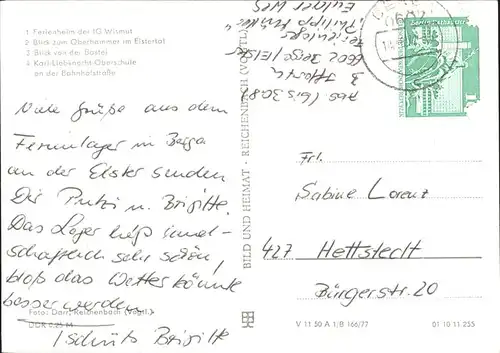 1 Ferienheim der IG Wismut
2 Blick zum Oberhammer im Elstertal
3 Blick von der Bastei
4 Karl-Liebknecht-Oberschule
an der Bahnhofstraße
Viele Grüße aus dem
Ferienlager in Berga
an der Elster senden
Dir Putzi u. Brigitte.
Das Lager liegt
schaftlich sehr schön,
bloß das Wetter könnte
besser werden.
Tschüß Brigitte
Foto: Darr, Reichenbach (Vogtl.)
DDR 0,25 M
BILD UND HEIMAT · REICHENBACH (VOGTL)
Abs. (bis 30.8.)
Ferienlager
6602 Berga/Elster
Frl.
Sabine Lorenz
427 Hettstedt
Bürgerstr. 20
V 11 50 A 1/B 166/77
01 10 11 255